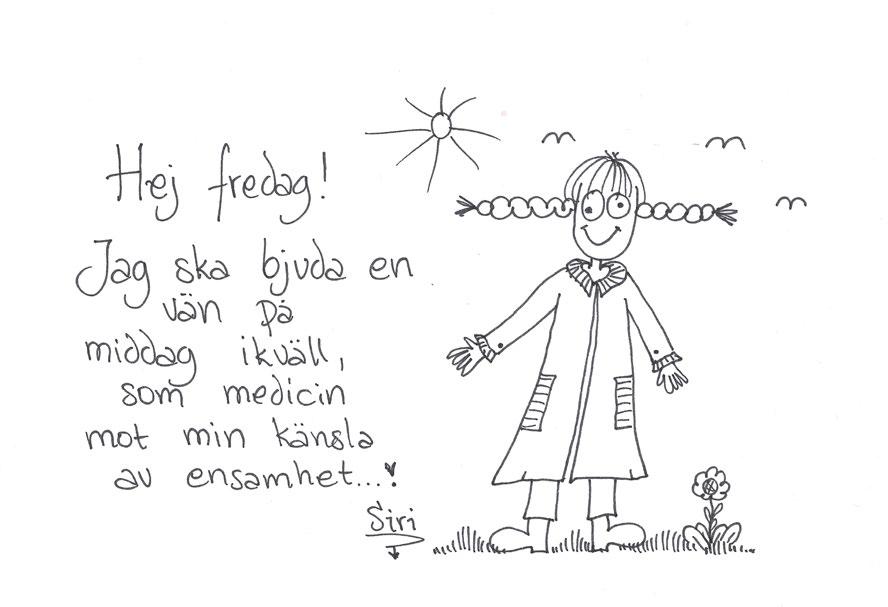 Hej fredag!
Jag ska bjuda en
vän på
middag ikväll,
som medicin
mot min känsla
av ensamhet...!
Siri